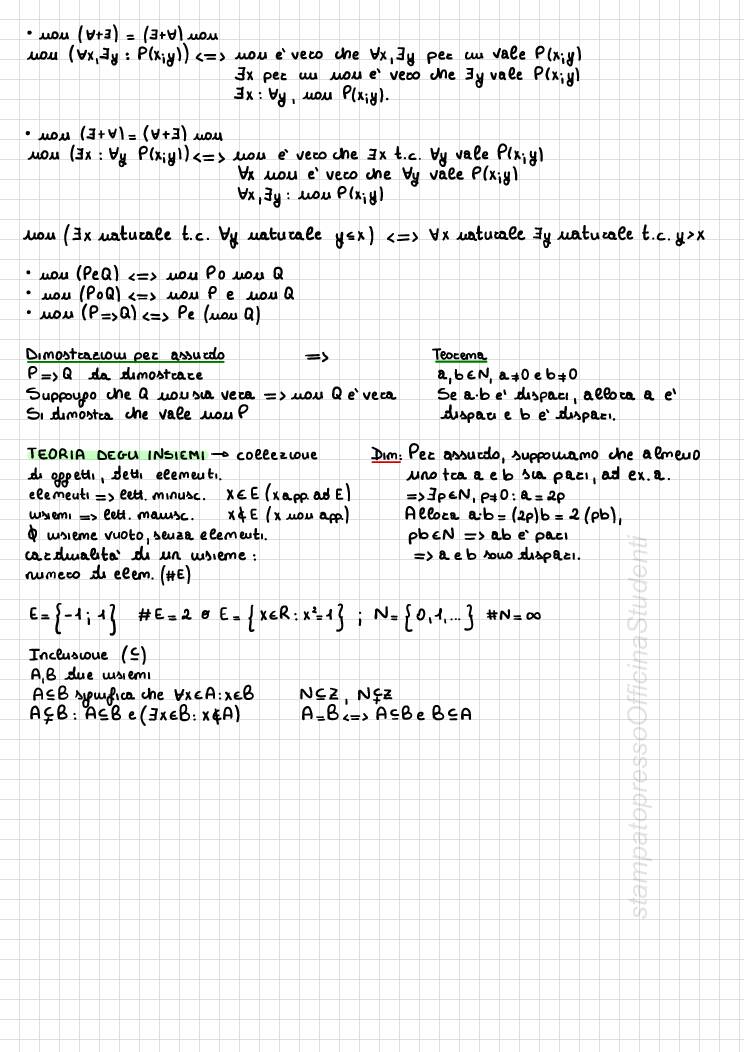 • non (∀+∃) = (∃+∀) non
non (∀x,∃y : P(x;y)) <=> non e' vero che ∀x,∃y per cui vale P(x;y)
∃x per cui non e' vero che ∃y vale P(x;y)
∃x : ∀y, non P(x;y).
• non (∃+∀) = (∀+∃) non
non (∃x : ∀y P(x;y)) <=> non e' vero che ∃x t.c. ∀y vale P(x;y)
∀x non e' vero che ∀y vale P(x;y)
∀x,∃y : non P(x;y)
non (∃x naturale t.c. ∀y naturale y≤x) <=> ∀x naturale ∃y naturale t.c. y>x
• non (PeQ) <=> non P o non Q
• non (PoQ) <=> non P e non Q
• non (P=>Q) <=> P e (non Q)
Dimostrazioni per assurdo =>
P=>Q da dimostrare
Suppongo che Q non sia vera => non Q e' vera
Si dimostra che vale non P
Teorema
a,b∈N, a≠0 e b≠0
Se a·b e' dispari, allora a e'
dispari e b e' dispari.
TEORIA DEGLI INSIEMI → collezione
di oggetti, detti elementi.
elementi => lett. minusc. x∈E (x app. ad E)
insiemi => lett. maiusc. x∉E (x non app.)
ϕ insieme vuoto, senza elementi.
cardinalita' di un insieme :
numero di elem. (#E)
Dim: Per assurdo, supponiamo che almeno
uno tra a e b sia pari, ad ex. a.
=> ∃p∈N, p≠0 : a = 2p
Allora a·b = (2p)b = 2 (pb),
pb∈N => ab e' pari
=> a e b sono dispari.
E = {-1 ; 1} #E = 2 o E = {x∈R : x²=1} ; N = {0,1,...} #N = ∞
Inclusione (⊆)
A,B due insiemi
A⊆B significa che ∀x∈A : x∈B N⊆Z , N⊊Z
A⊊B : A⊆B e (∃x∈B : x∉A) A=B <=> A⊆B e B⊆A
stampatopressoOfficinaStudenti